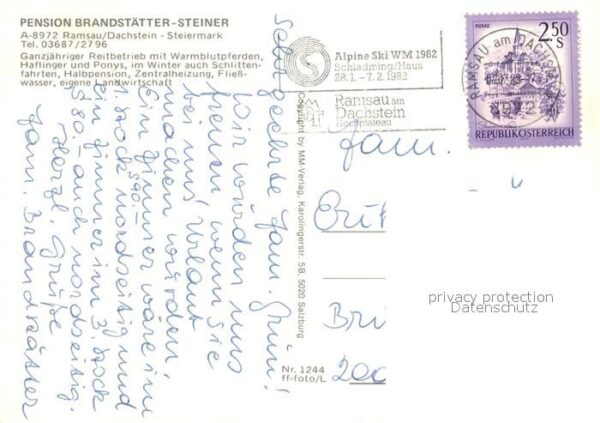 PENSION BRANDSTÄTTER-STEINER
A-8972 Ramsau/Dachstein - Steiermark
Tel. 03687/2796
Ganzjähriger Reitbetrieb mit Warmblutpferden,
Haflinger und Ponys, im Winter auch Schlitten-
fahrten, Halbpension, Zentralheizung, Fließ-
wasser, eigene Landwirtschaft
Alpine Ski WM 1982
Schladming/Haus
28.1. - 7.2. 1982
Ramsau am
Dachstein
Hochplateau
RAMSAU am DACHSTEIN
8972
MURAU
2.50
S
REPUBLIK ÖSTERREICH
Sehr geehrte Fam. Grün!
Wir würden uns
freuen wenn Sie
bei uns Urlaub
machen würden.
Ein Zimmer wäre im
1. Stock nordseitig und
S 90.-
ein Zimmer im 3. Stock
S 80.- auch nordseitig.
Herzl. Grüße
Fam. Brandstätter
Copyright by MM-Verlag, Karolingerstr. 5B, 5020 Salzburg
Fam.
Bri
200
privacy protection
Datenschutz
Nr. 1244
ff-foto/L